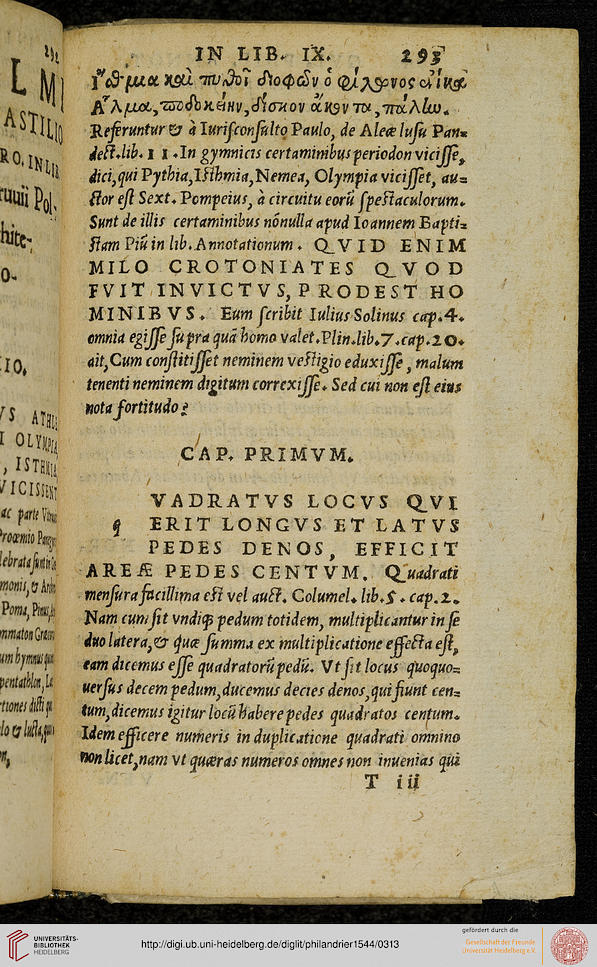 IN LIB. IX. 293
Ἴσθμια καὶ πυθοῖ διοφῶν ὁ φίλωνος ἐνίκα
Ἅλμα, ποδωκείην, δίσκον ἄκοντα, πάλην.
Referuntur & à Iurisconsulto Paulo, de Aleæ lusu Pan=
dect.lib. 11. In gymnicis certaminibus periodon vicisse,
dici, qui Pythia, Isthmia, Nemea, Olympia vicisset, au=
ctor est Sext. Pompeius, à circuitu eorũ spectaculorum.
Sunt de illis certaminibus nõnulla apud Ioannem Bapti=
stam Piũ in lib. Annotationum. QVID ENIM
MILO CROTONIATES QVOD
FVIT INVICTVS, PRODEST HO
MINIBVS. Eum scribit Iulius Solinus cap.4.
omnia egisse supra quã homo valet. Plin.lib.7.cap.20.
ait, Cum constitisset neminem vestigio eduxisse, malum
tenenti neminem digitum correxisse. Sed cui non est eius
nota fortitudo?
CAP. PRIMVM.
VADRATVS LOCVS QVI
q ERIT LONGVS ET LATVS
PEDES DENOS, EFFICIT
AREÆ PEDES CENTVM. Quadrati
mensura facillima est vel auct. Columel. lib.5. cap.2.
Nam cum sit vndiq; pedum totidem, multiplicantur in se
duo latera, & quæ summa ex multiplicatione effecta est,
eam dicemus esse quadratorũ pedũ. Vt sit locus quoquo=
uersus decem pedum, ducemus decies denos, qui fiunt cen=
tum, dicemus igitur locũ habere pedes quadratos centum.
Idem efficere numeris in duplicatione quadrati omnino
non licet, nam vt quæras numeros omnes non inuenias qui
T iii
UNIVERSITÄTS-
BIBLIOTHEK
HEIDELBERG
http://digi.ub.uni-heidelberg.de/diglit/philandrier1544/0313
gefördert durch die
Gesellschaft der Freunde
Universität Heidelberg e.V.